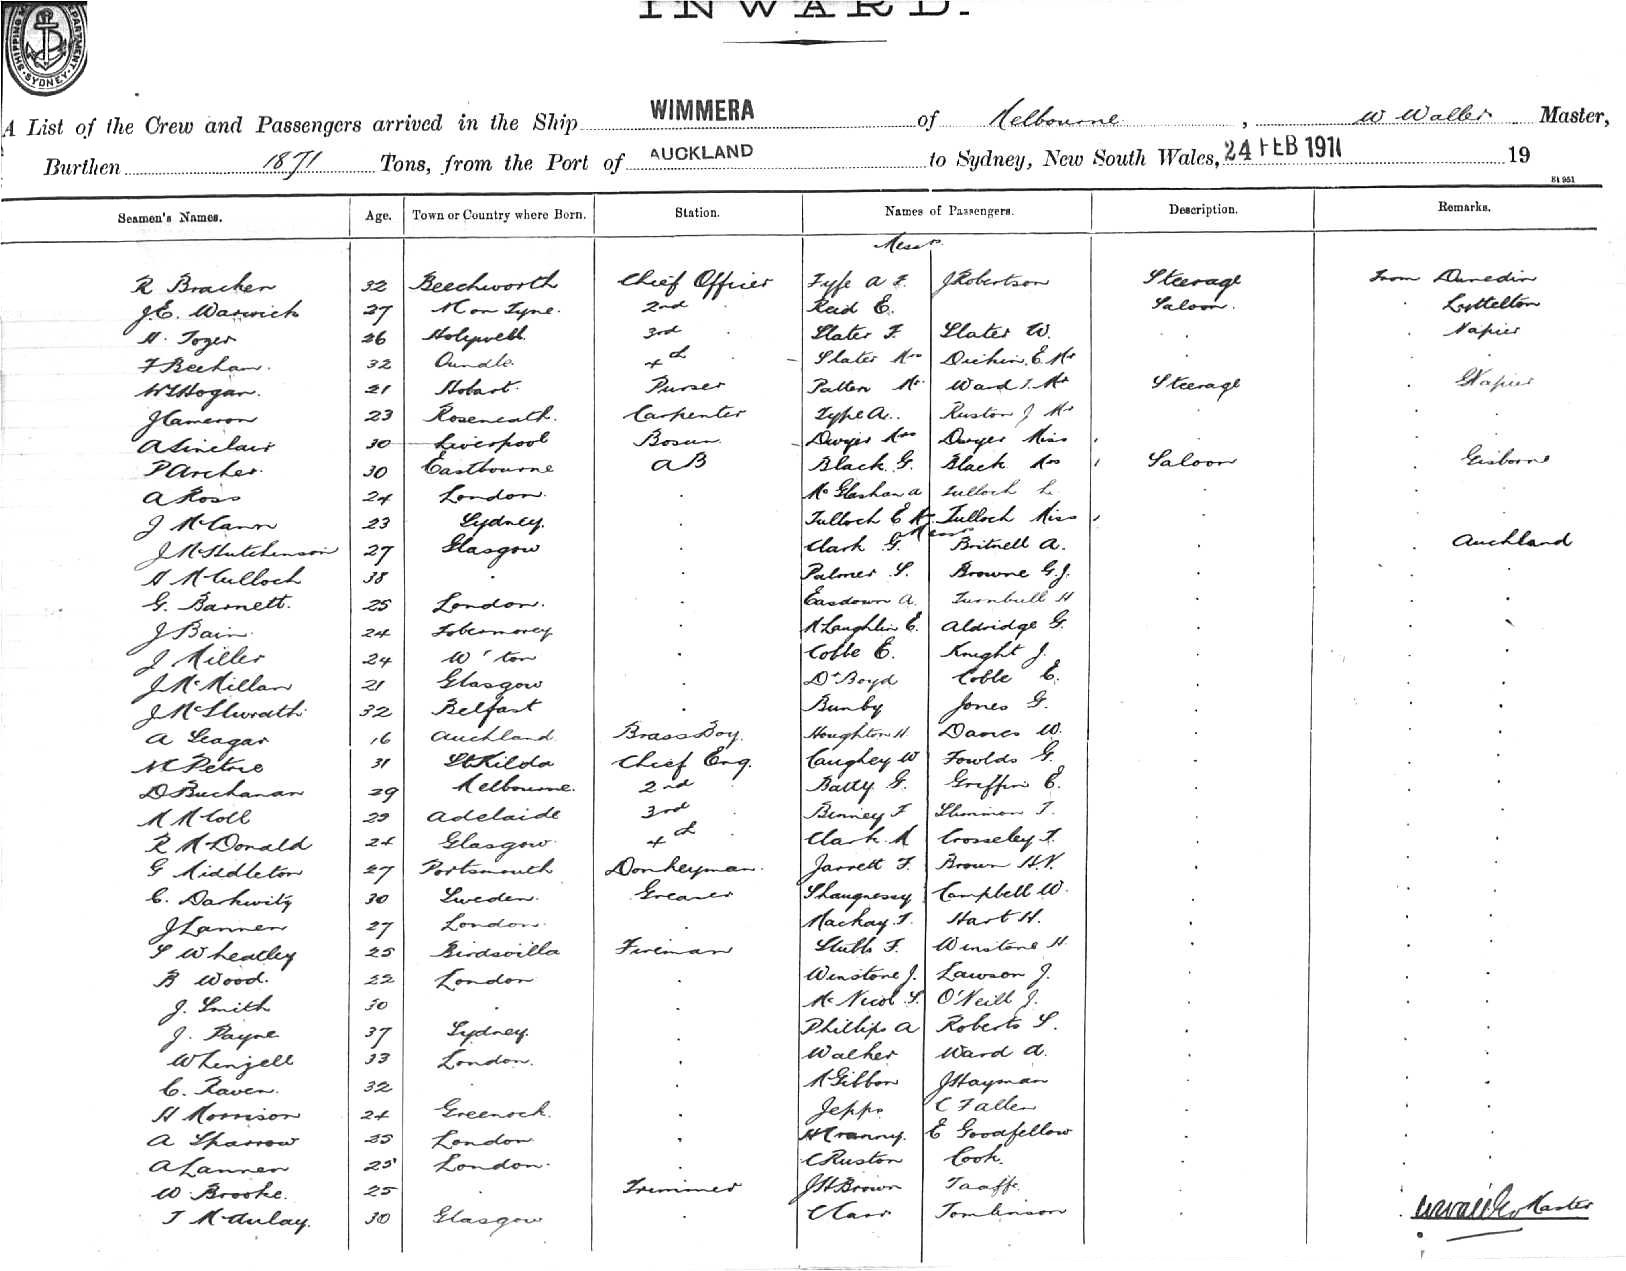 INWARD.
SHIPPING DEPARTMENT SYDNEY
A List of the Crew and Passengers arrived in the Ship WIMMERA of Melbourne, W Waller Master,
Burthen 1871 Tons, from the Port of AUCKLAND to Sydney, New South Wales, 24 FEB 1911 19
Seamen's Names. Age. Town or Country where Born. Station. Names of Passengers. Description. Remarks.
Messrs
R Bracken 32 Beechworth Chief Officer Fyfe A F. J Robertson Steerage From Dunedin
J.E. Warwick 27 N on Tyne. 2nd Reid E. Saloon. Lyttelton
H. Tozer 26 Holywell 3rd Slater F. Slater W. Napier
F Beeham. 32 Oundle. 4th Slater Mrs Dickin E. Mr
W Hogan. 21 Hobart. Purser Patten Mr Ward Mr Steerage Napier
J Cameron 23 Roseneath. Carpenter Fyfe A. Ruston J Mr
A Sinclair 30 Liverpool Bosun Dwyer Mrs Dwyer Miss
P Archer. 30 Eastbourne AB Black G. Black Mrs Saloon Gisborne
A Ross 24 London. McGlashan A Tulloch L.
J McCann 23 Sydney. Tulloch E Tulloch Miss
J McHutchinson 27 Glasgow Clark G. Messrs Britnell A. Auckland
McCulloch 38 Palmer S. Browne G.J.
G. Barnett. 25 London. Easdown A. Turnbull H
J Bain. 24 Tobermorey McLaughlin E. Aldridge G.
J Miller 24 W'ton Coble E. Knight J.
J McMillan 21 Glasgow Dr Boyd Coble E.
J McIlwrath 32 Belfast Bunby Jones G.
A Seagar 16 Auckland Brass Boy. Houghton H. Davies W.
Petrie 31 St Kilda Chief Eng. Caughey W Fowlds G.
D Buchanan 29 Melbourne. 2nd Batty G. Griffin E.
McColl 22 Adelaide 3rd Binney F Slimmon T.
R McDonald 24 Glasgow 4th Clark M Crosseley F.
G Middleton 27 Portsmouth Donkeyman. Jarrett F. Brown H.V.
C. Darkwitz 30 Sweden. Greaser Shaugnessy Campbell W.
J Lannen 27 London. Mackay T. Hart H.
S Wheatley 25 Birdsville Fireman Stubbs F. Winstone H.
B Wood. 22 London Winstone J. Lawson J.
J. Smith 30 McNicol S. O'Neill J.
J. Payne 37 Sydney. Phillips A Roberts S.
W Lingell 33 London. Walker Ward A.
C. Raven. 32 McGibbon J Hayman
H Morrison 24 Greenock. Jepps C Fallen
A Sparrow 35 London H Cranny. E Goodfellow
A Lannen 25 London. C Ruston Cook.
W Brooke. 25 Trimmer J H Brown Taaffe.
T McAulay. 30 Glasgow C Carr Tomlinson W Waller Master